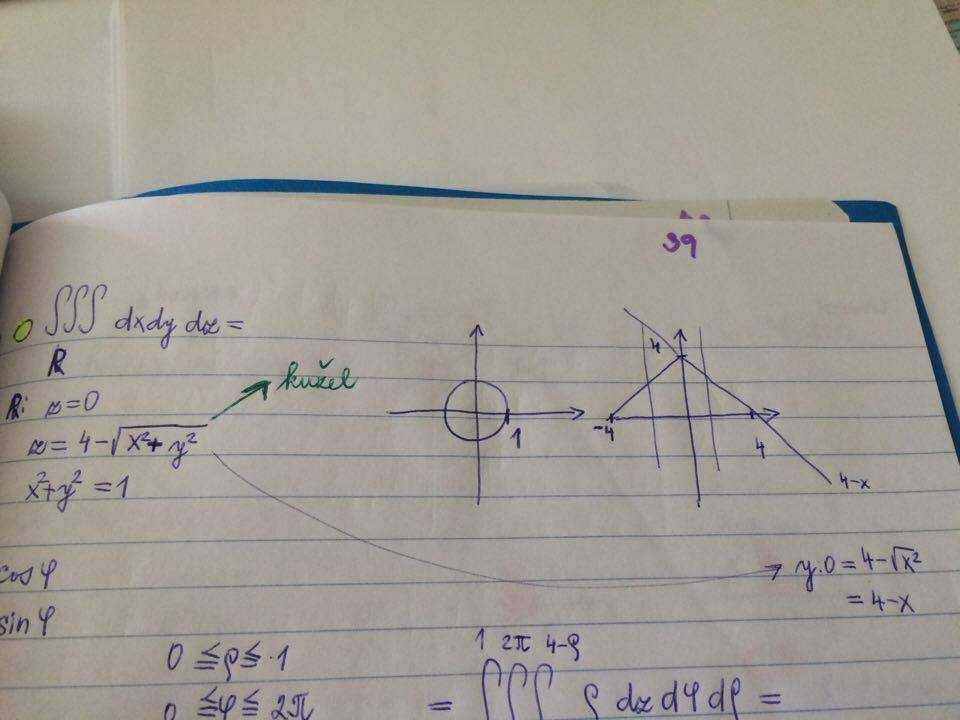 39
∭ dxdydz =
R
R: z=0
kužel
z= 4-√x²+y²
x²+y²=1
1
4
-4
4
4-x
y.0 = 4-√x²
= 4-x
cos φ
sin φ
0 ≦ρ≦ 1
0 ≦φ≦ 2π
1 2π 4-ρ
= ∭ ρ dz dφ dρ =